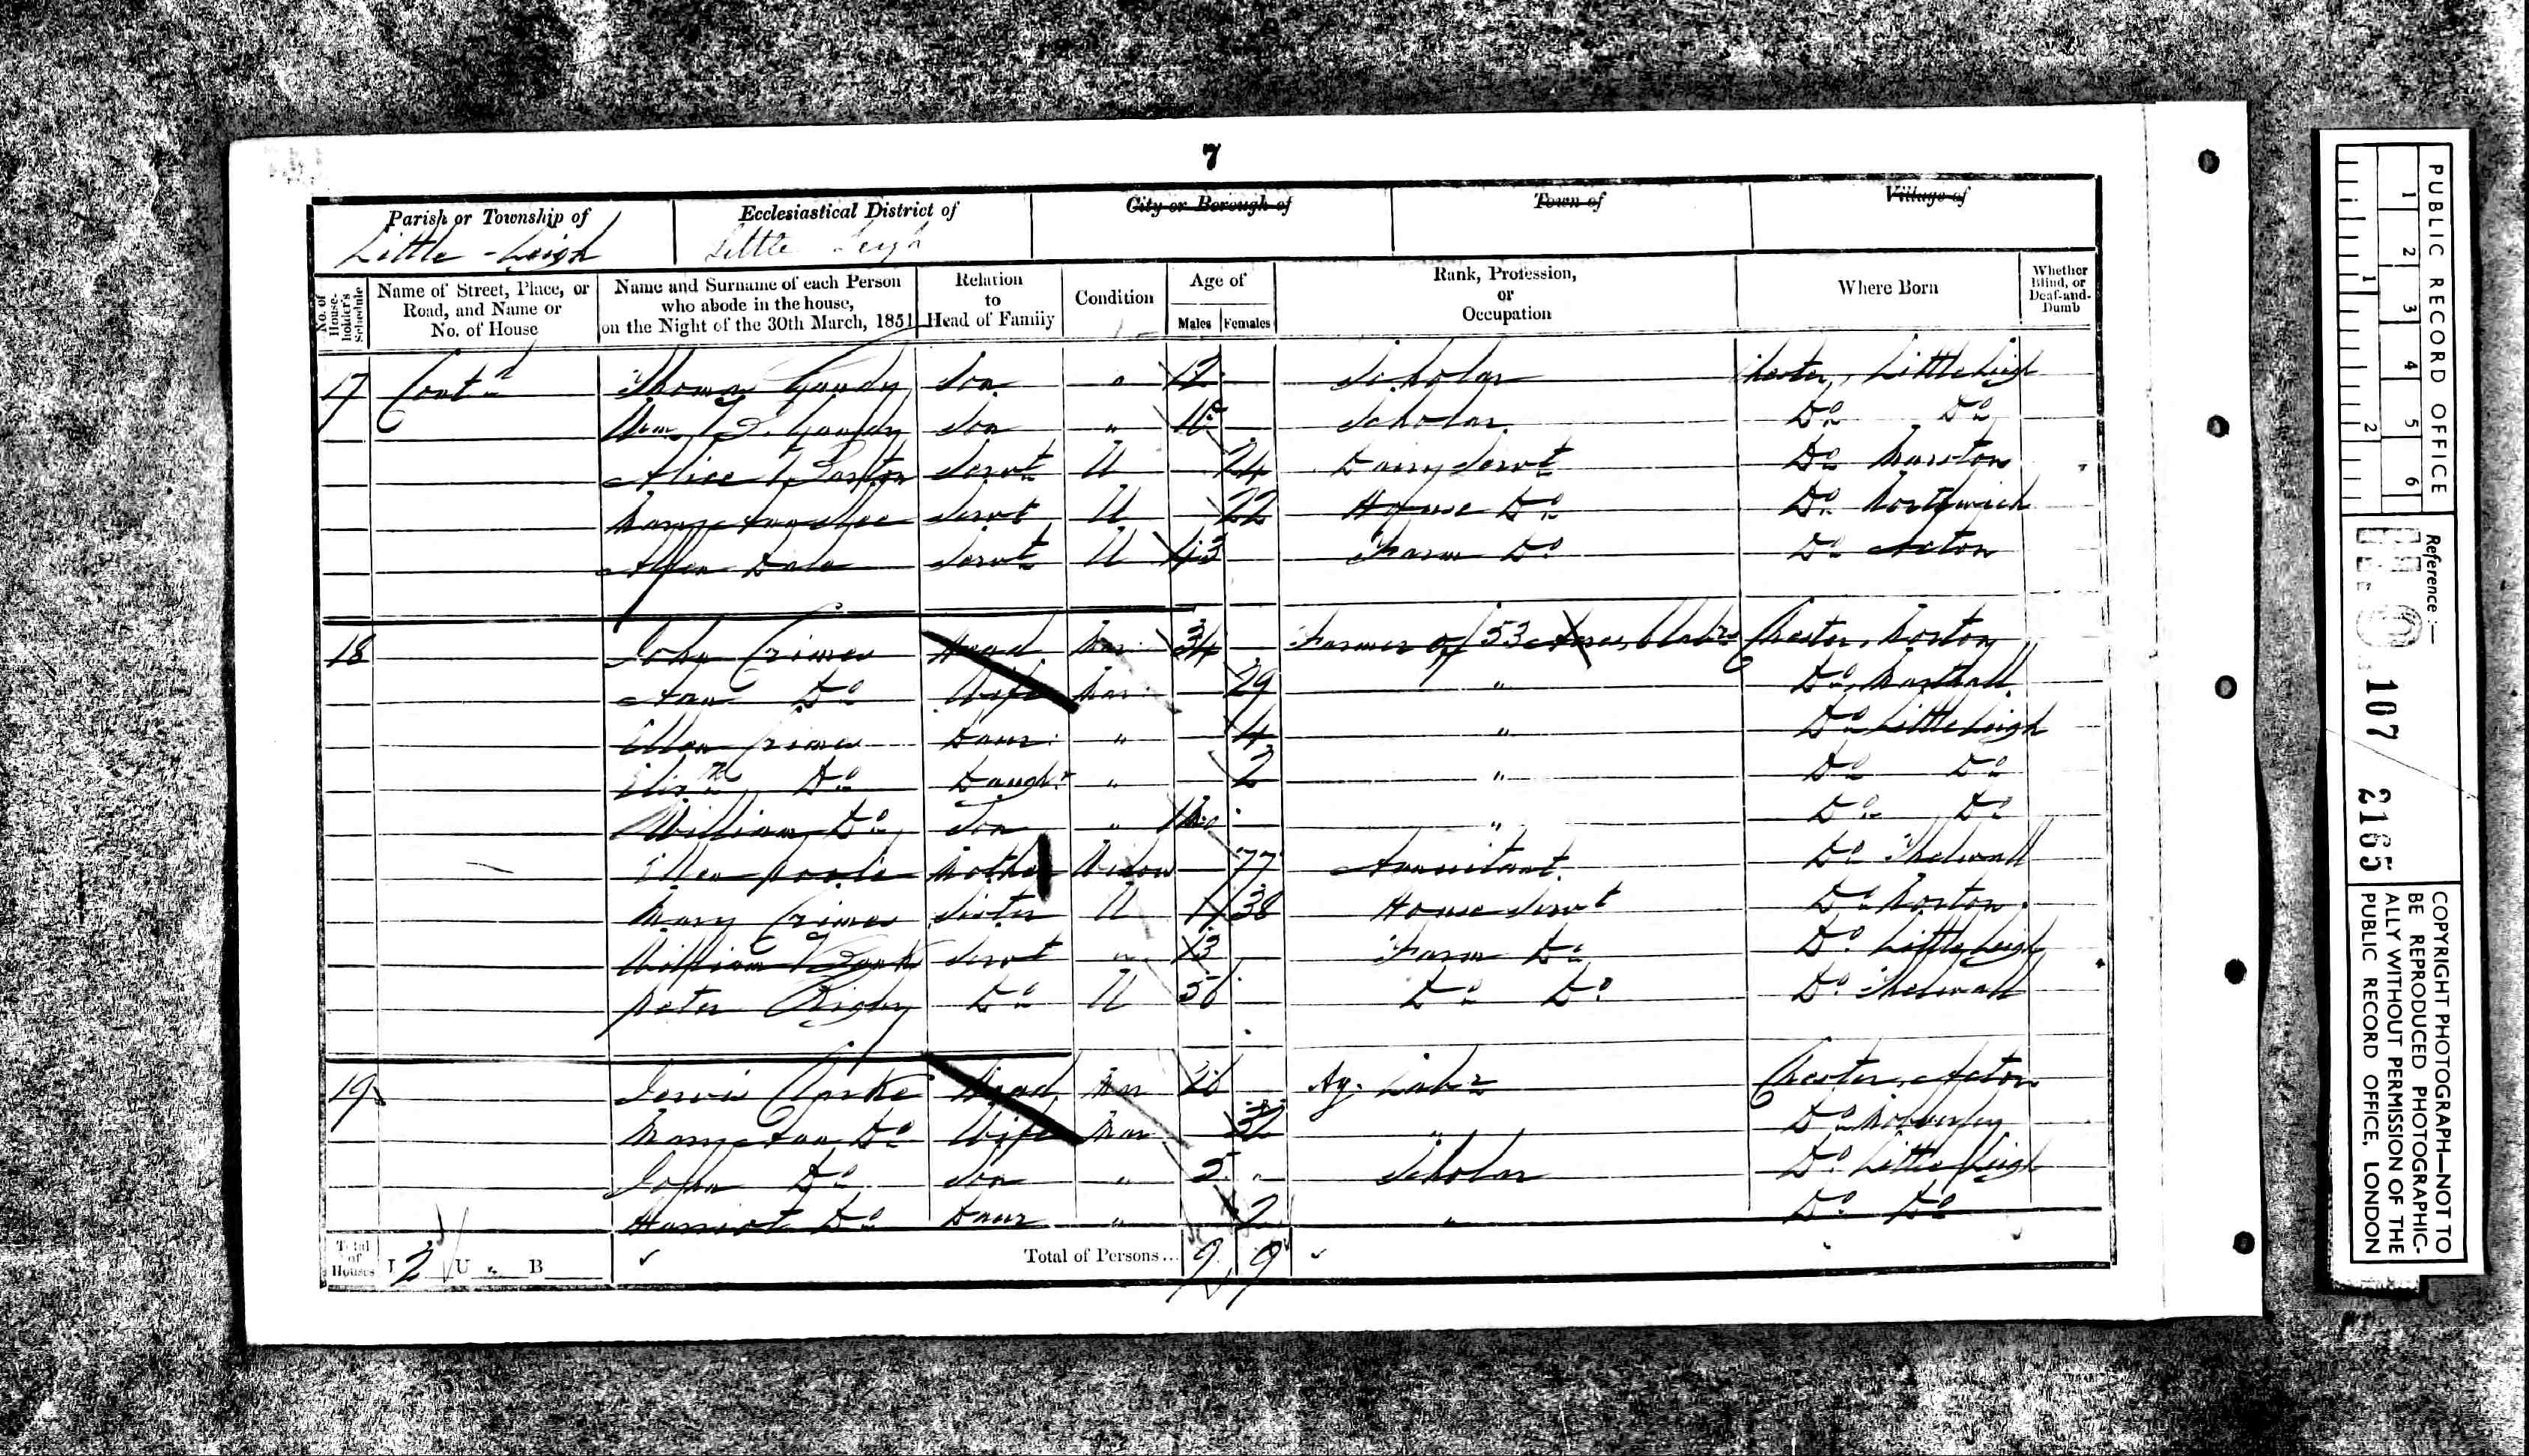 7
Parish or Township of
Little - Leigh
Ecclesiastical District of
Little Leigh
City or Borough of
Town of
Village of
No. of House-holder's Schedule
Name of Street, Place, or Road, and Name or No. of House
Name and Surname of each Person who abode in the house, on the Night of the 30th March, 1851
Relation to Head of Family
Condition
Age of
Males
Females
Rank, Profession, or Occupation
Where Born
Whether Blind, or Deaf-and-Dumb
17 Contd Thomas Gandy Son " 12 Scholar Chester, Little Leigh
Wm Gandy Son " 10 Scholar Do Do
Alice Servt U 24 Dairy Servt Do Marston
Mary Ann Lee Servt U 22 House Do Do Northwich
Dale Servt U 43 Farm Do Do Acton
18 John Crimes Head Mar 34 Farmer of 53 Acres Chester, Norton
Ann Do Wife Mar 29 " Do
Ellen Crimes Daur " 4 " Do Little Leigh
Elizth Do Daughr " 2 " Do Do
William Do Son " " Do Do
Ellen Poole Mother Widow 77 Annuitant Do Thelwall
Mary Crimes Sister U 38 House Servt Do Norton
William Servt " 13 Farm Do Do Little Leigh
Peter Rigby Do U 56 Do Do Do Thelwall
19 Clarke Head Mar 26 Ag. Labr Chester, Acton
Mary Ann Do Wife Mar 32 " Do Mobberley
John Do Son " 5 Scholar Do Little Leigh
Harriot Do Daur " 2 " Do Do
Total of Houses I 2 U B
Total of Persons... 9 9
PUBLIC RECORD OFFICE
1 2 3 4 5 6
1 2
Reference :—
107 / 2165
COPYRIGHT PHOTOGRAPH—NOT TO
BE REPRODUCED PHOTOGRAPHIC-
ALLY WITHOUT PERMISSION OF THE
PUBLIC RECORD OFFICE, LONDON